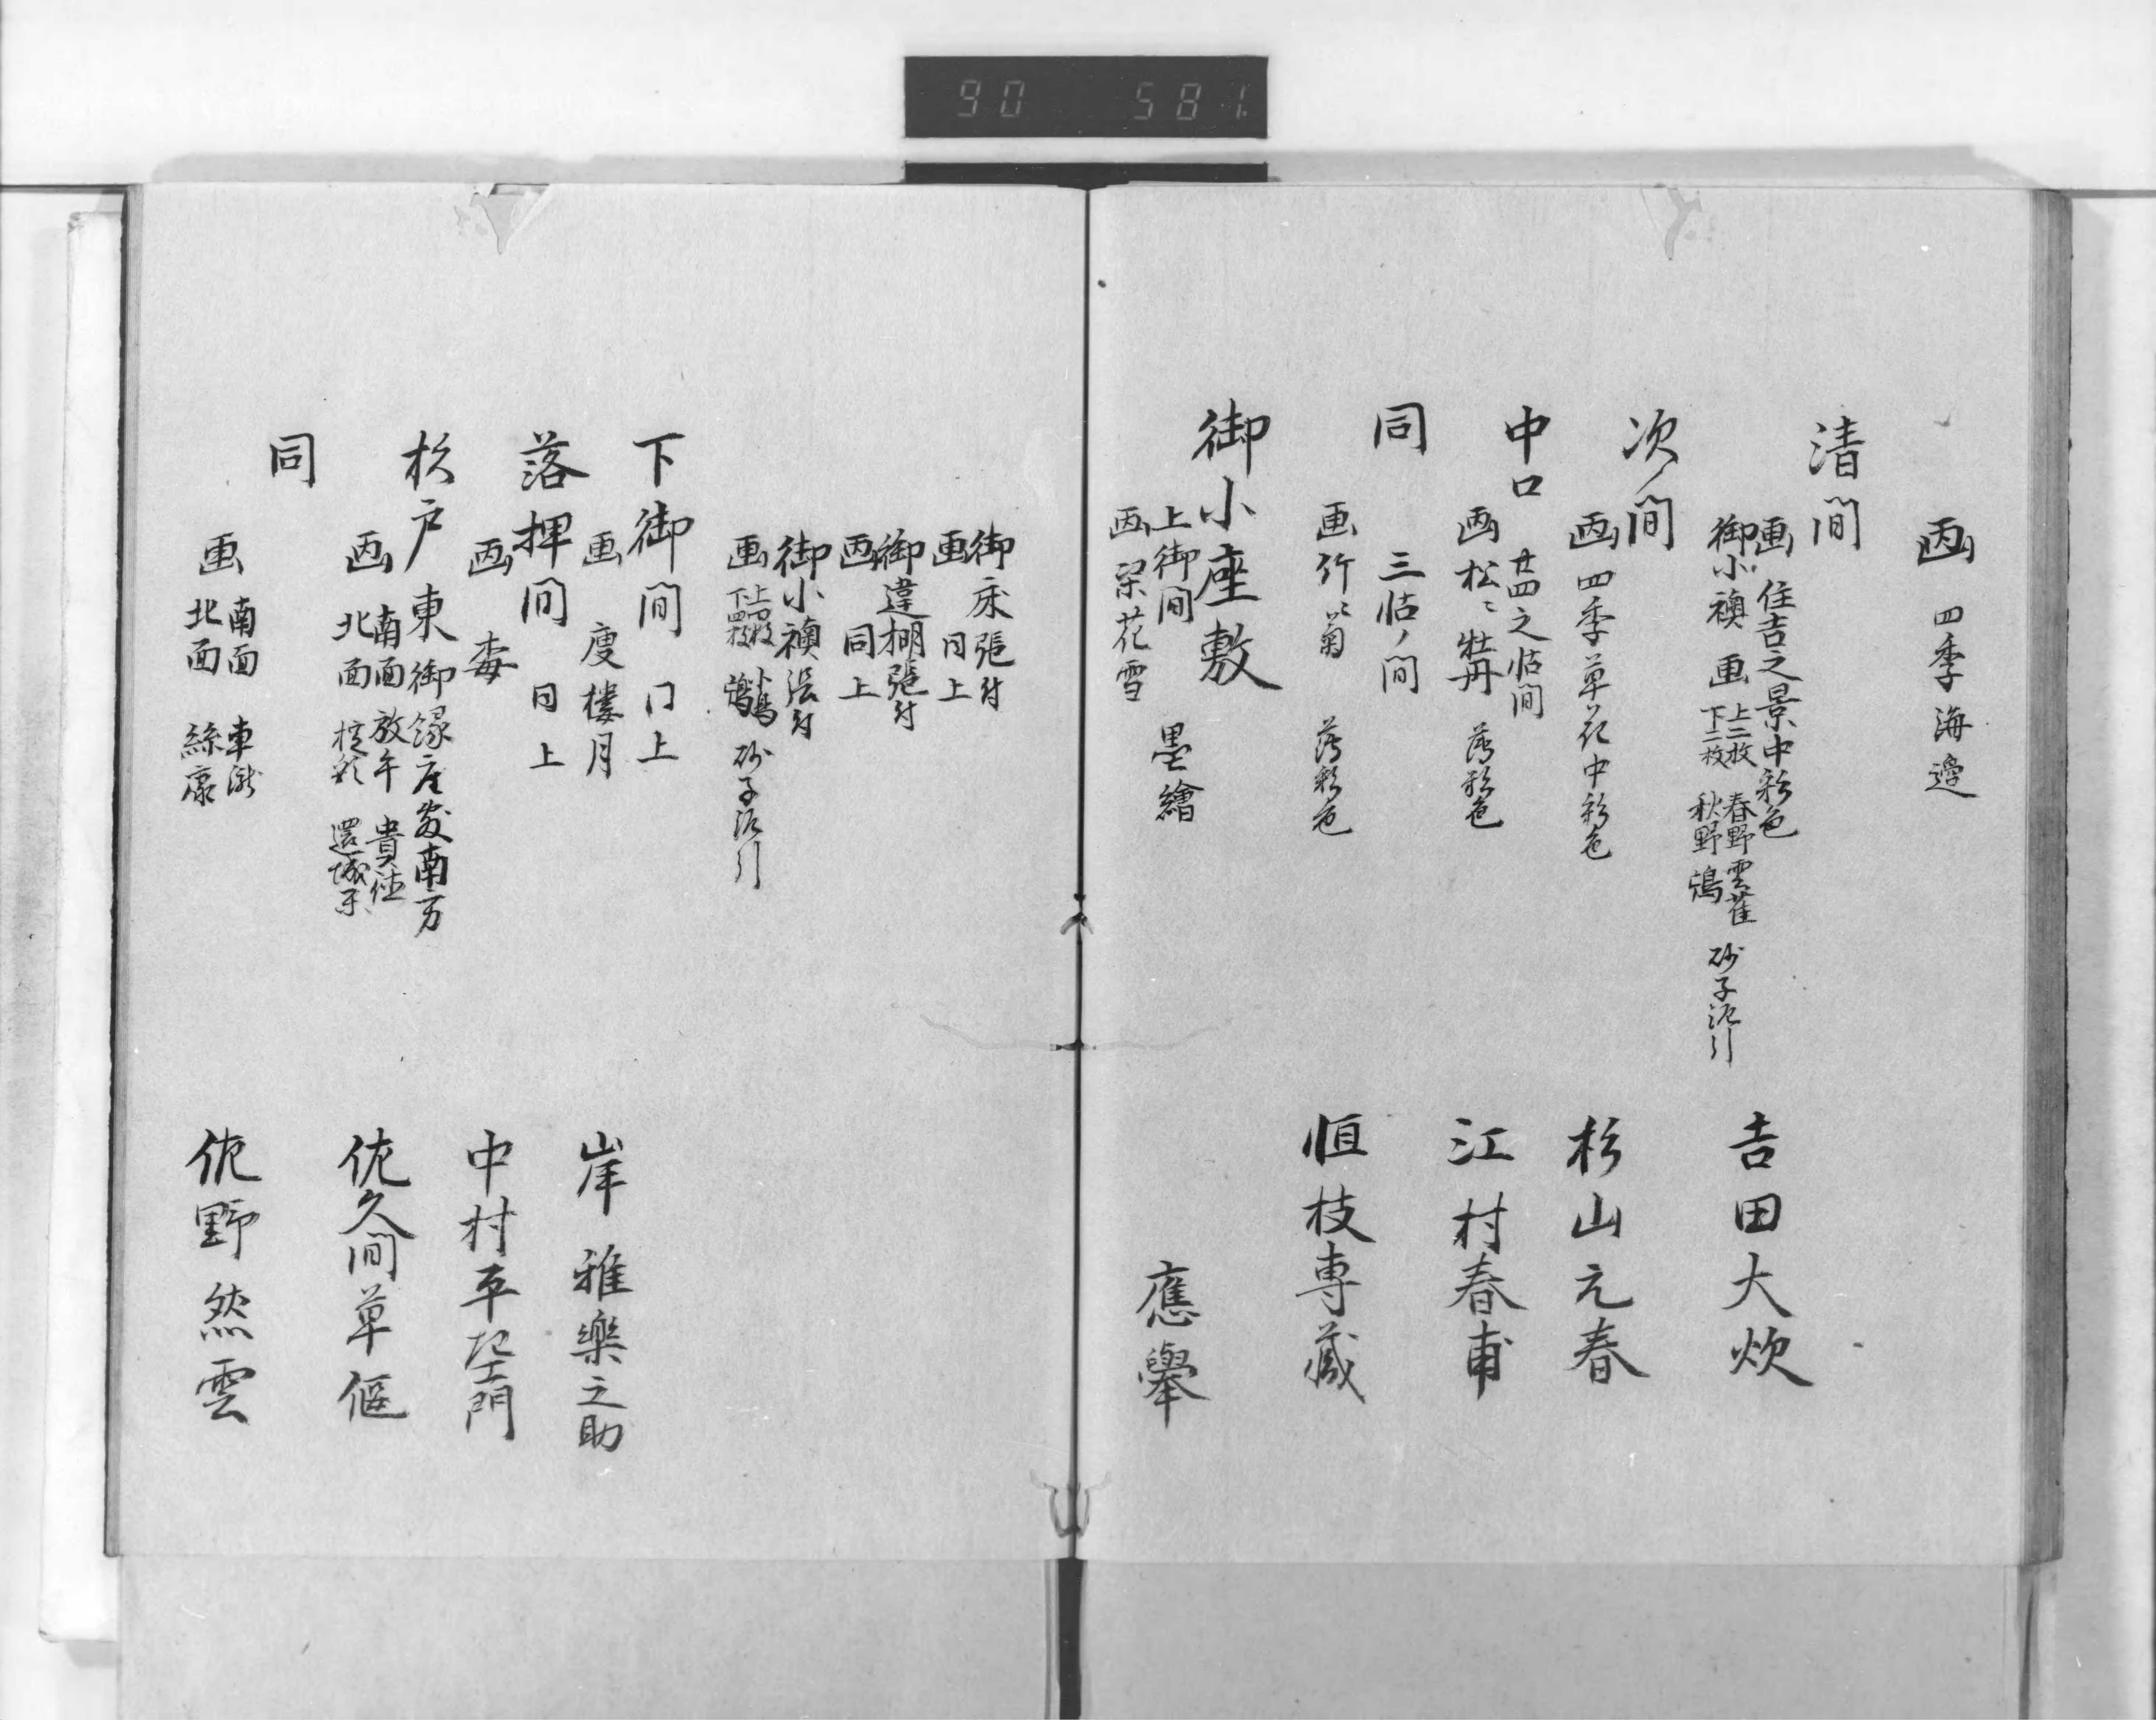 90 581
画 四季海邊
清間
画 住吉之景中彩色
御小襖 画 上二枚 春野雲雀 砂子泥引
下二枚 秋野鶉
吉田大炊
次ノ間
画 四季草花中彩色
杉山元春
中口
廿四之帖間
画 松ニ牡丹 薄彩色
江村春甫
同 三帖ノ間
画 竹ニ菊 薄彩色
恒枝専蔵
御小座敷
上御間
画 梁花雪 墨繪
應擧
御床張付
画 同上
御違棚張付
画 同上
御小襖張付
画 砂子泥引
下御間 同上
画 廋樓月
岸雅樂之助
落押間 同上
画 梅
中村平左衛門
杉戸 東御縁座敷南方
画 南面 放牛
北面
佐久間草偃
同
画 南面
北面
佐野然雲